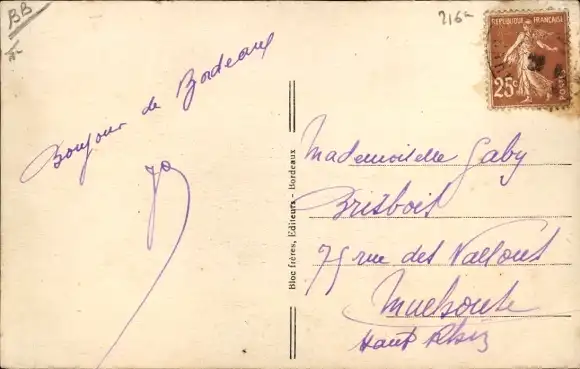 BB
216a
RÉPUBLIQUE FRANÇAISE
25c
POSTES
Bonjour de Bordeaux
Jo
Bloc frères, Editeurs - Bordeaux
Mademoiselle Gaby
Brisbois
75 rue des Vallons
Mulhouse
Haut Rhin